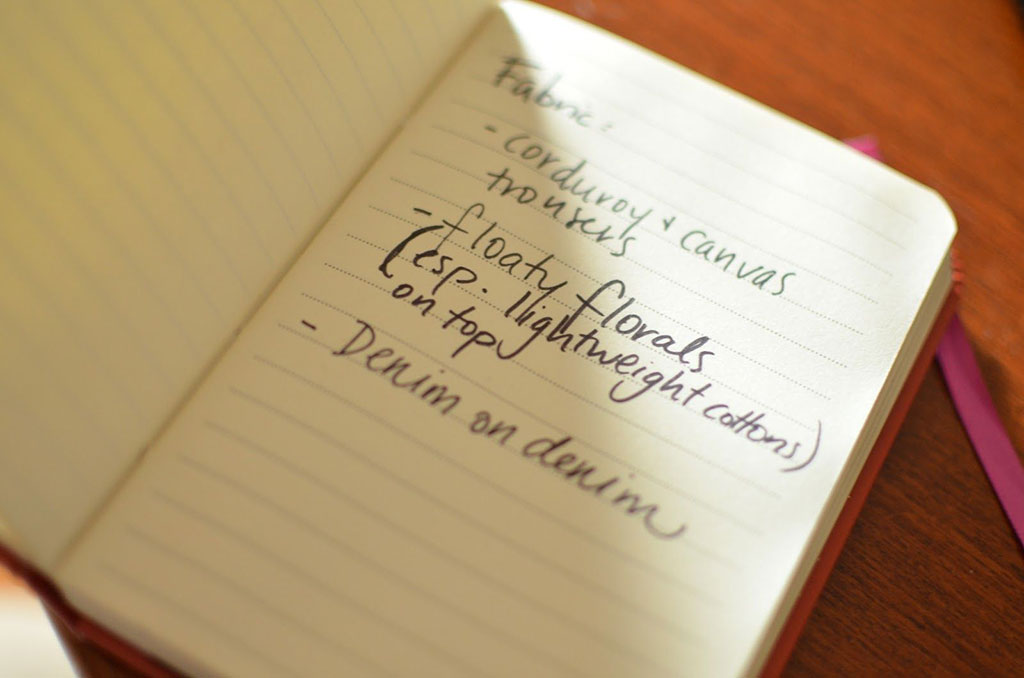 Fabric:
- corduroy + canvas
trousers
- floaty florals
(esp. llightweight cottons)
on top
- Denim on denim